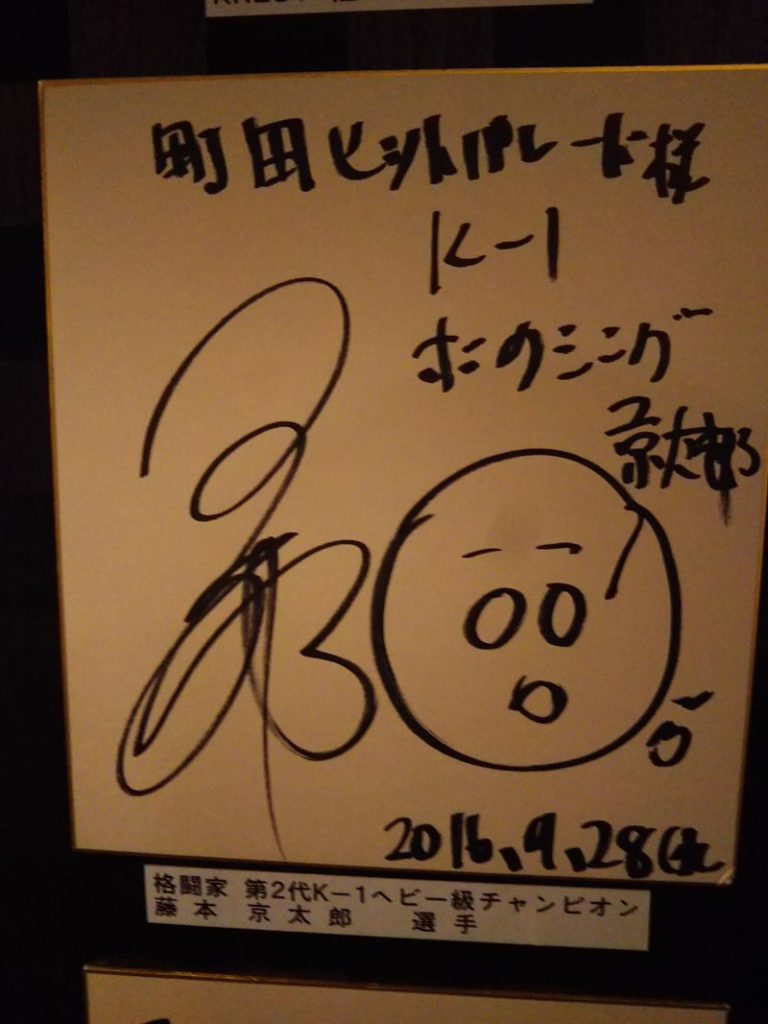 町田ヒットパレード様
K-1
ボクシング
京太郎
2016.9.28
格闘家 第2代K-1ヘビー級チャンピオン
藤本 京太郎 選手